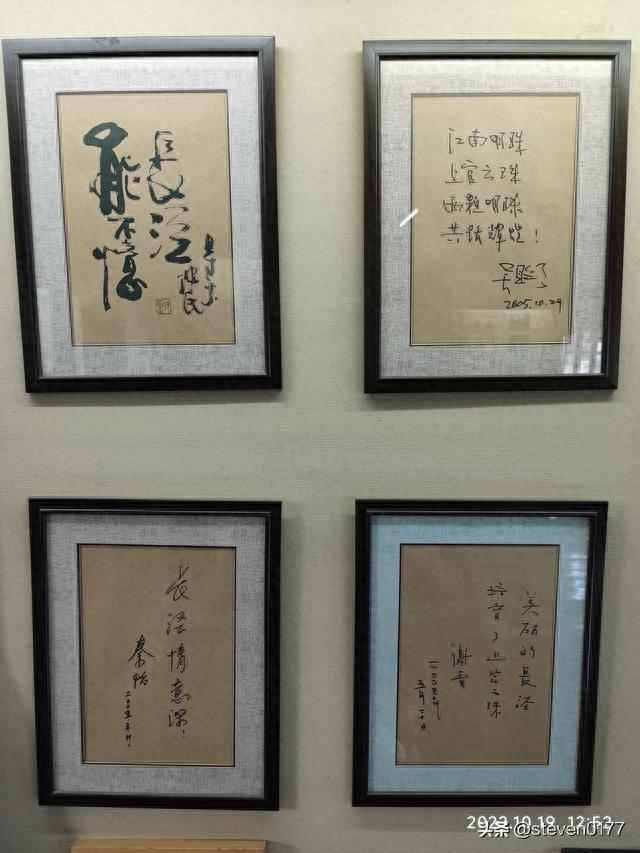 長泾
能不憶
江南明珠
上官云珠
两颗明珠
共铸辉煌！
吴贻弓
2005.10.29
长泾情意深！
秦怡
美丽的長泾
培育了上官云珠
谢晋
二〇〇五年
五月二十日
2023.10.19 12:52
头条 @steven0177